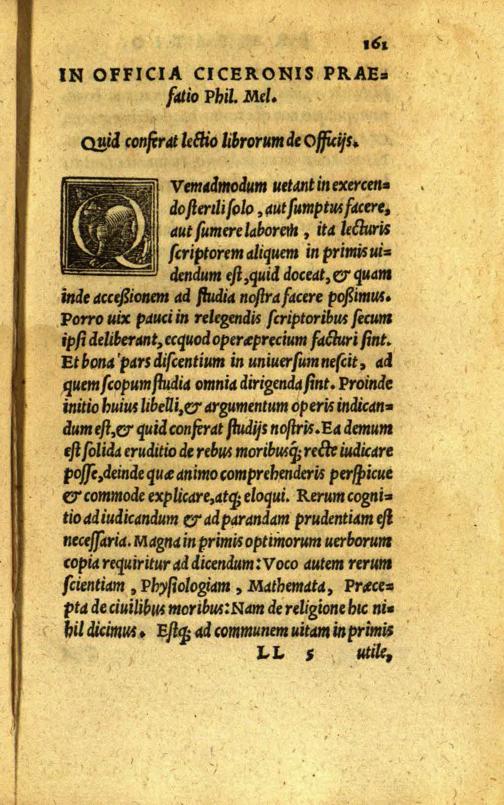 161
IN OFFICIA CICERONIS PRAE=
fatio Phil. Mel.
Quid conferat lectio librorum de Officijs.
QVemadmodum uetant in exercen=
do sterili solo, aut sumptus facere,
aut sumere laborem, ita lecturis
scriptorem aliquem in primis ui=
dendum est, quid doceat, & quam
inde acceßionem ad studia nostra facere poßimus.
Porro uix pauci in relegendis scriptoribus secum
ipsi deliberant, ecquod operæprecium facturi sint.
Et bona pars discentium in uniuersum nescit, ad
quem scopum studia omnia dirigenda sint. Proinde
initio huius libelli, & argumentum operis indican=
dum est, & quid conferat studijs nostris. Ea demum
est solida eruditio de rebus moribusq́; recte iudicare
posse, deinde quæ animo comprehenderis perspicue
& commode explicare, atq; eloqui. Rerum cogni=
tio ad iudicandum & ad parandam prudentiam est
necessaria. Magna in primis optimorum uerborum
copia requiritur ad dicendum: Voco autem rerum
scientiam, Physiologiam, Mathemata, Præce=
pta de ciuilibus moribus: Nam de religione hic ni=
hil dicimus. Estq́; ad communem uitam in primis
LL 5 utile,